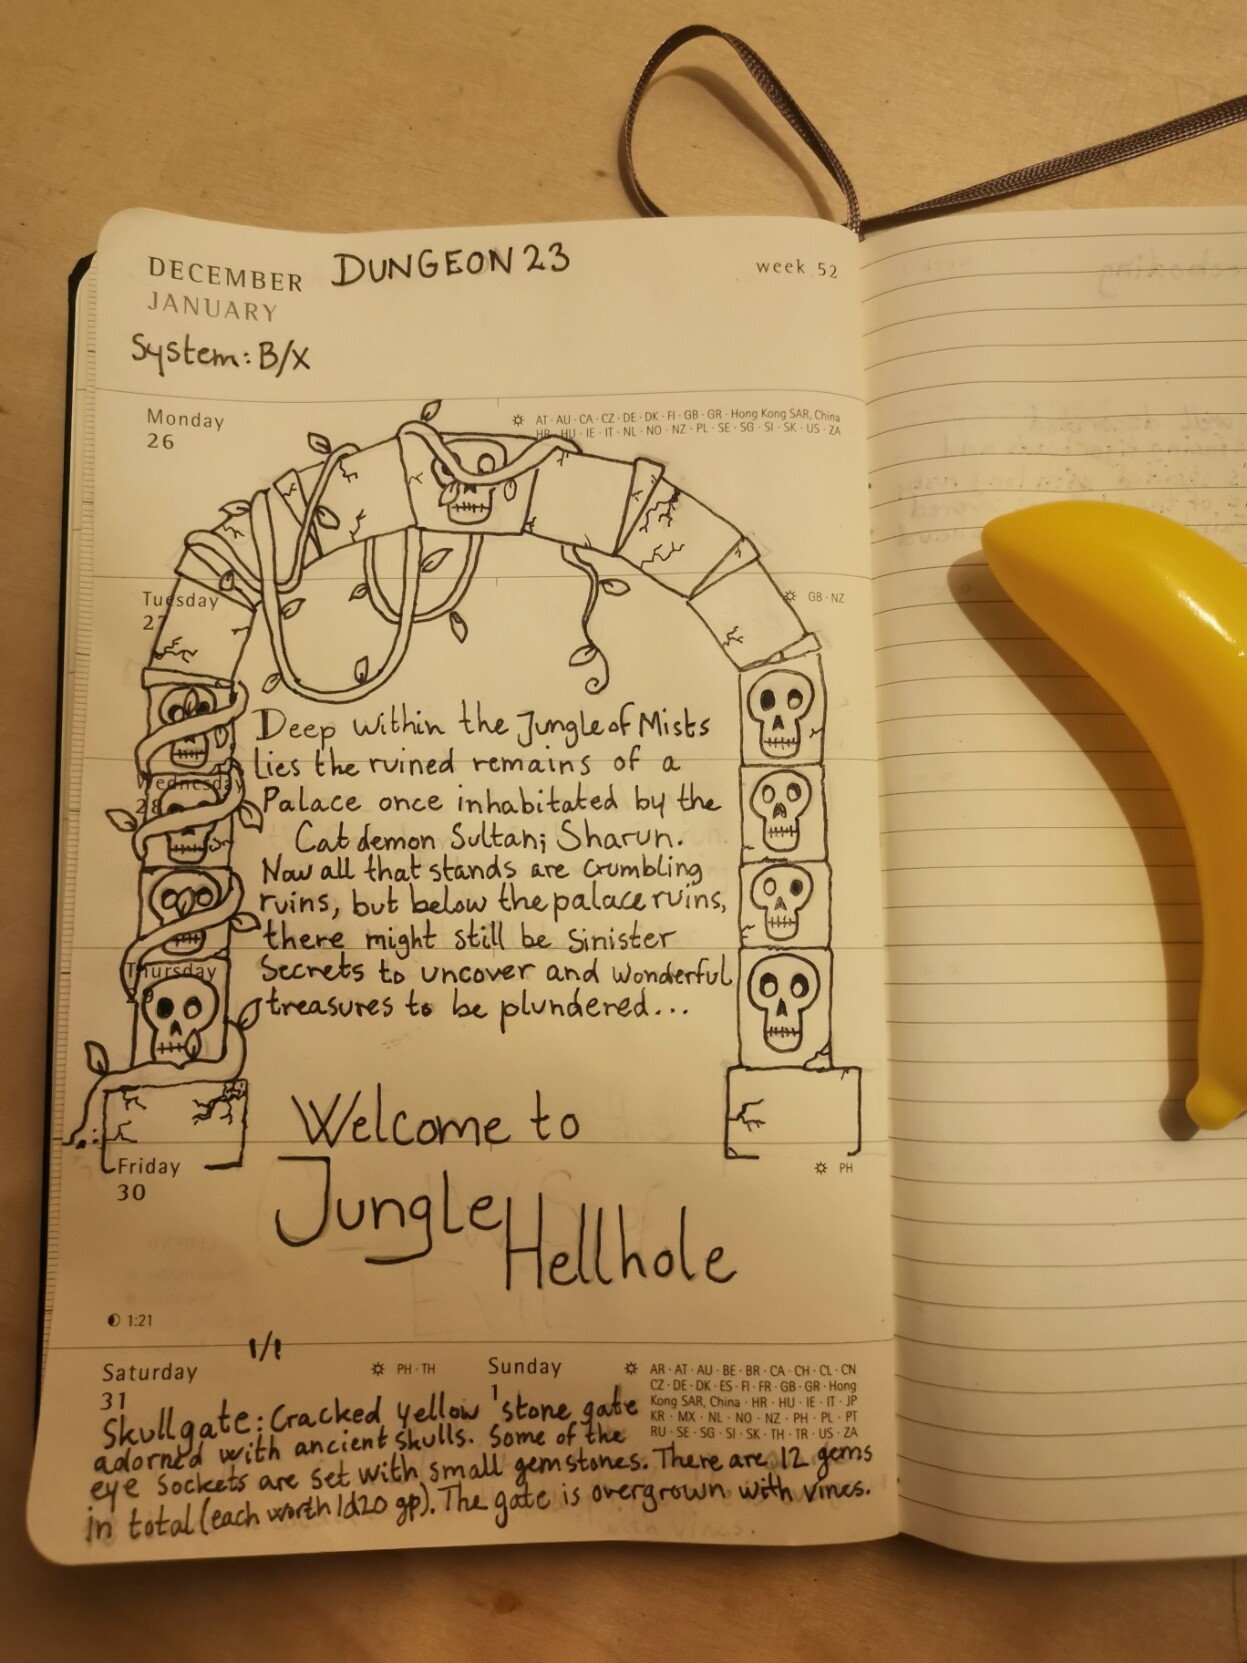 DECEMBER DUNGEON 23 week 52
JANUARY
System: B/X
Monday
26
AT · AU · CA · CZ · DE · DK · FI · GB · GR · Hong Kong SAR, China
HR · HU · IE · IT · NL · NO · NZ · PL · SE · SG · SI · SK · US · ZA
Tuesday
27
GB · NZ
Deep within the Jungle of Mists
lies the ruined remains of a
Wednesday
28
Palace once inhabitated by the
Cat demon Sultan; Sharun.
Now all that stands are crumbling
ruins, but below the palace ruins,
there might still be sinister
Thursday
29
Secrets to uncover and wonderful
treasures to be plundered...
Welcome to
Friday
30
PH
Jungle
Hellhole
1:21
1/1
Saturday
31
PH · TH
Sunday
1
AR · AT · AU · BE · BR · CA · CH · CL · CN
CZ · DE · DK · ES · FI · FR · GB · GR · Hong
Kong SAR, China · HR · HU · IE · IT · JP
KR · MX · NL · NO · NZ · PH · PL · PT
RU · SE · SG · SI · SK · TH · TR · US · ZA
Skullgate: Cracked yellow stone gate
adorned with ancient skulls. Some of the
eye sockets are set with small gemstones. There are 12 gems
in total (each worth 1d20 gp). The gate is overgrown with vines.